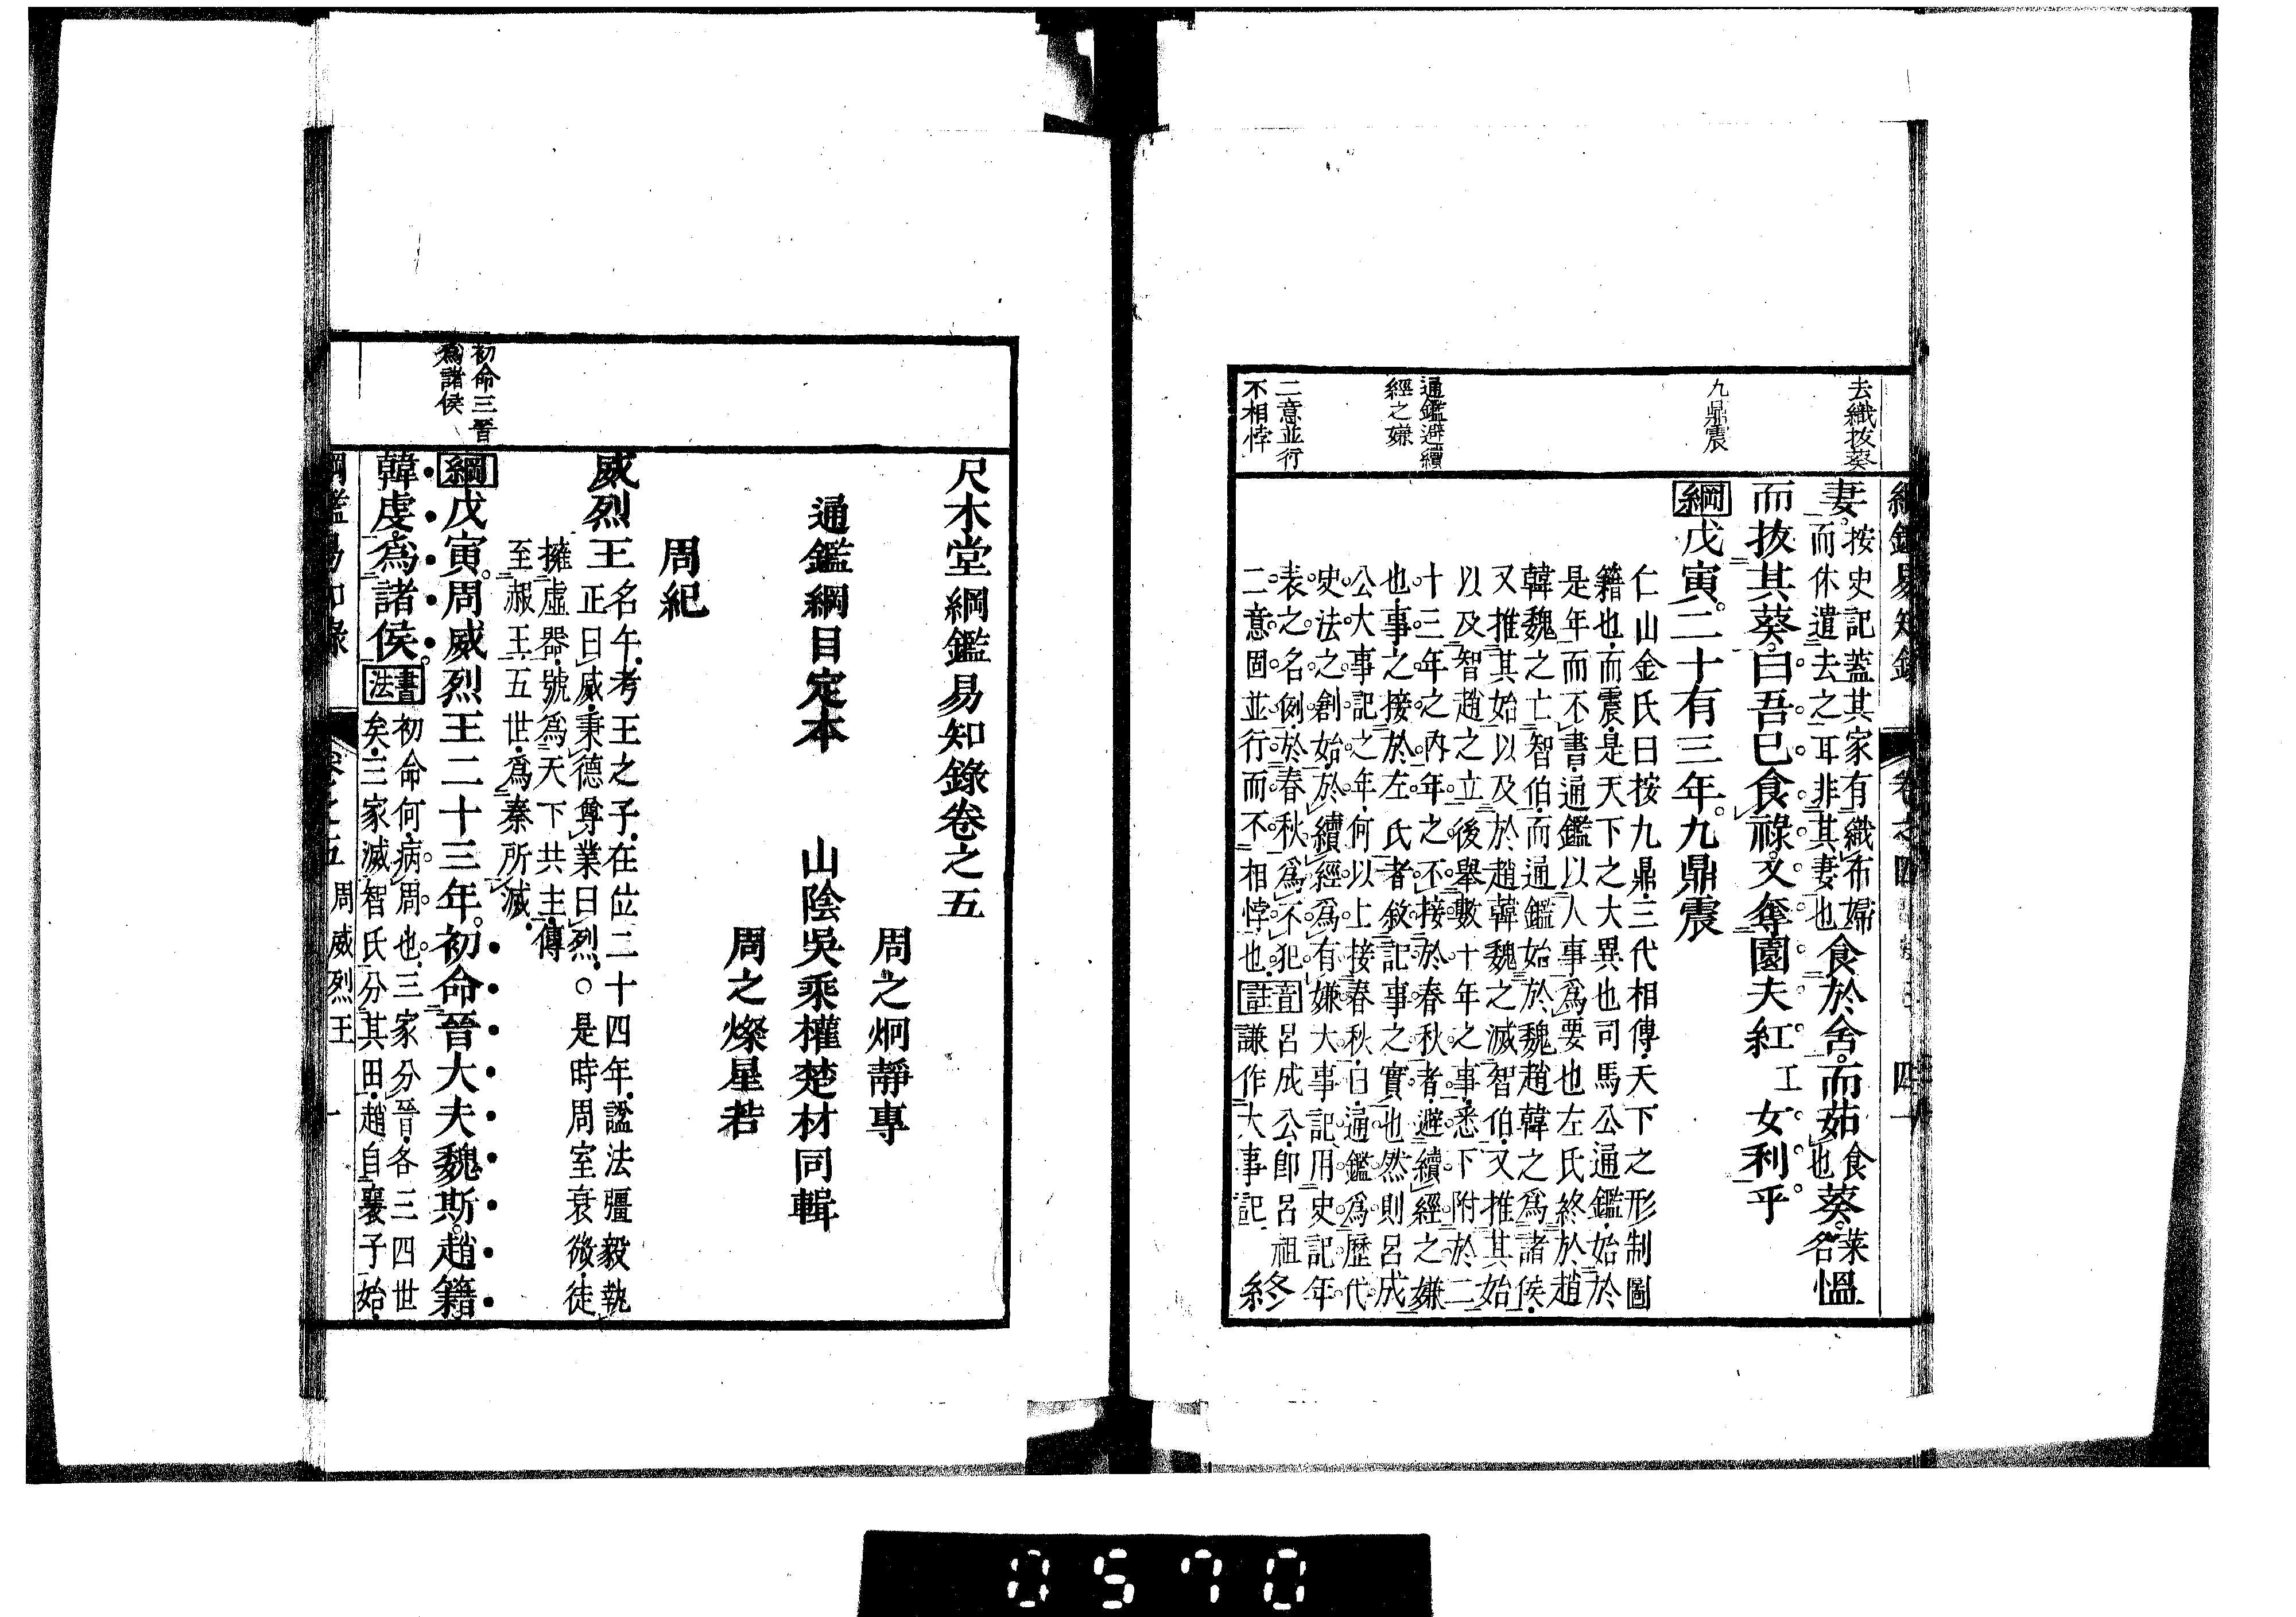 去織拔葵
九鼎震
通鑑避續
經之嫌
二意並行
不相悖
妻按史記蓋其家有織布婦而休遣去之耳非其妻也食於舍而茹食也葵菜名慍
而拔其葵曰吾已食祿又奪園夫紅工女利乎
綱戊寅二十有三年九鼎震
仁山金氏曰按九鼎三代相傳天下之形制圖
籍也而震是天下之大異也司馬公通鑑始於
是年而不書通鑑以人事為要也左氏終於趙
韓魏之亡智伯而通鑑始於魏趙韓之為諸侯
又推其始以及於趙韓魏之滅智伯又推其始
以及智趙之立後舉數十年之事悉下附於二
十三年之內年之不接於春秋者避續經之嫌
也事之接於左氏者敘記事之實也然則呂成
公大事記之年何以上接春秋曰通鑑為歷代
史法之創始於續經為有嫌大事記用史記年
表之名例於春秋為不犯音呂成公即呂祖
二意固並行而不相悖也註謙作大事記 終
初命三晉
為諸侯
尺木堂綱鑑易知錄卷之五
周之炯靜專
通鑑綱目定本 山陰吳乘權楚材同輯
周之燦星若
周紀
威烈王名午考王之子在位二十四年諡法彊毅執
正曰威秉德尊業曰烈○是時周室衰微徒
擁虛器號為天下共主傳
至赧王五世為秦所滅
綱戊寅周威烈王二十三年初命晉大夫魏斯趙籍
韓虔為諸侯書法初命何病周也三家分晉各三四世
矣三家滅智氏分其田趙自襄子始
周威烈王 一
0570